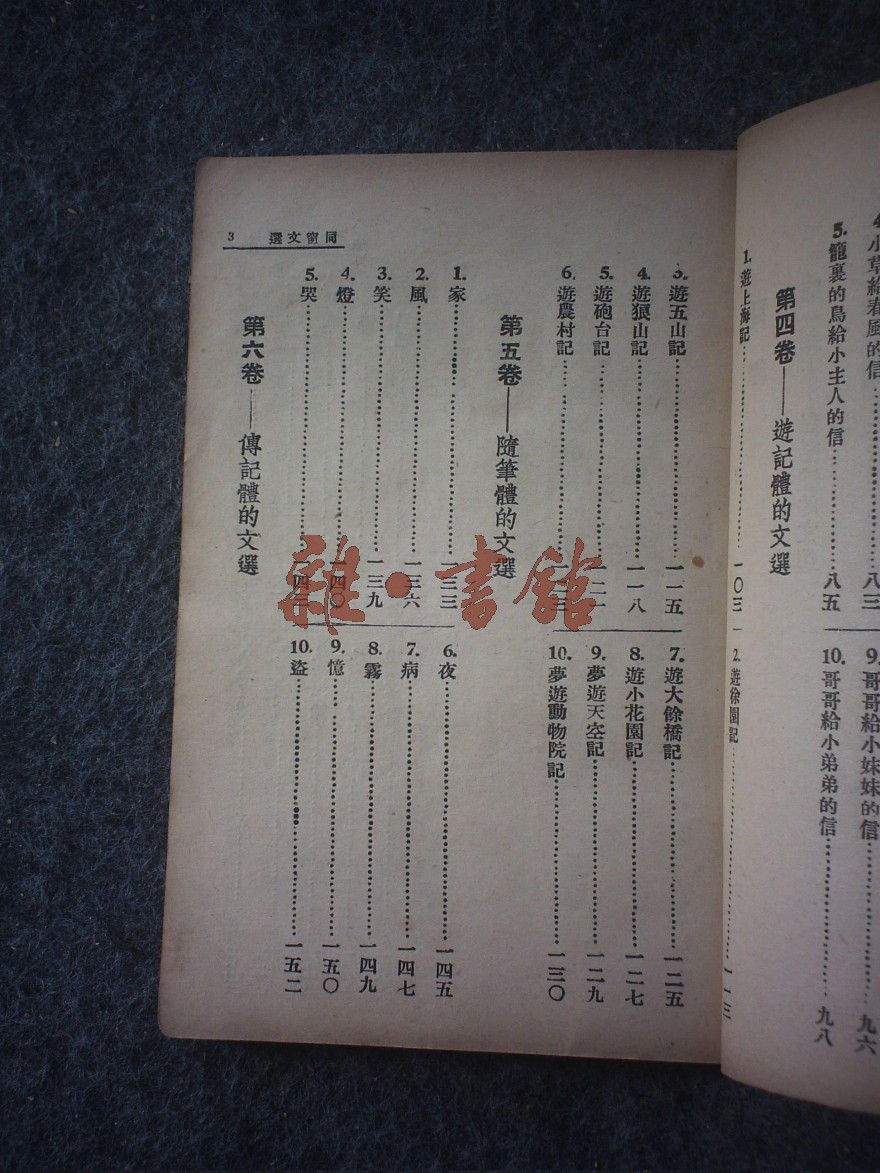 4. 小草給春風的信 八三
5. 籠裏的鳥給小主人的信 八五
9. 哥哥給小妹妹的信 九六
10. 哥哥給小弟弟的信 九八
第四卷——遊記體的文選
1. 遊上海記 一〇三
2. 遊徐園記 一一三
選文窗同 3
3. 遊五山記 一一五
4. 遊狼山記 一一八
5. 遊砲台記 一二一
6. 遊農村記
7. 遊大徐橋記 一二五
8. 遊小花園記 一二七
9. 夢遊天空記 一二九
10. 夢遊動物院記 一三〇
第五卷——隨筆體的文選
1. 家 一三三
2. 風 一三六
3. 笑 一三九
4. 燈 一四〇
5. 哭
6. 夜 一四五
7. 病 一四七
8. 霧 一四九
9. 憶 一五〇
10. 盜 一五二
第六卷——傳記體的文選
雜·書館